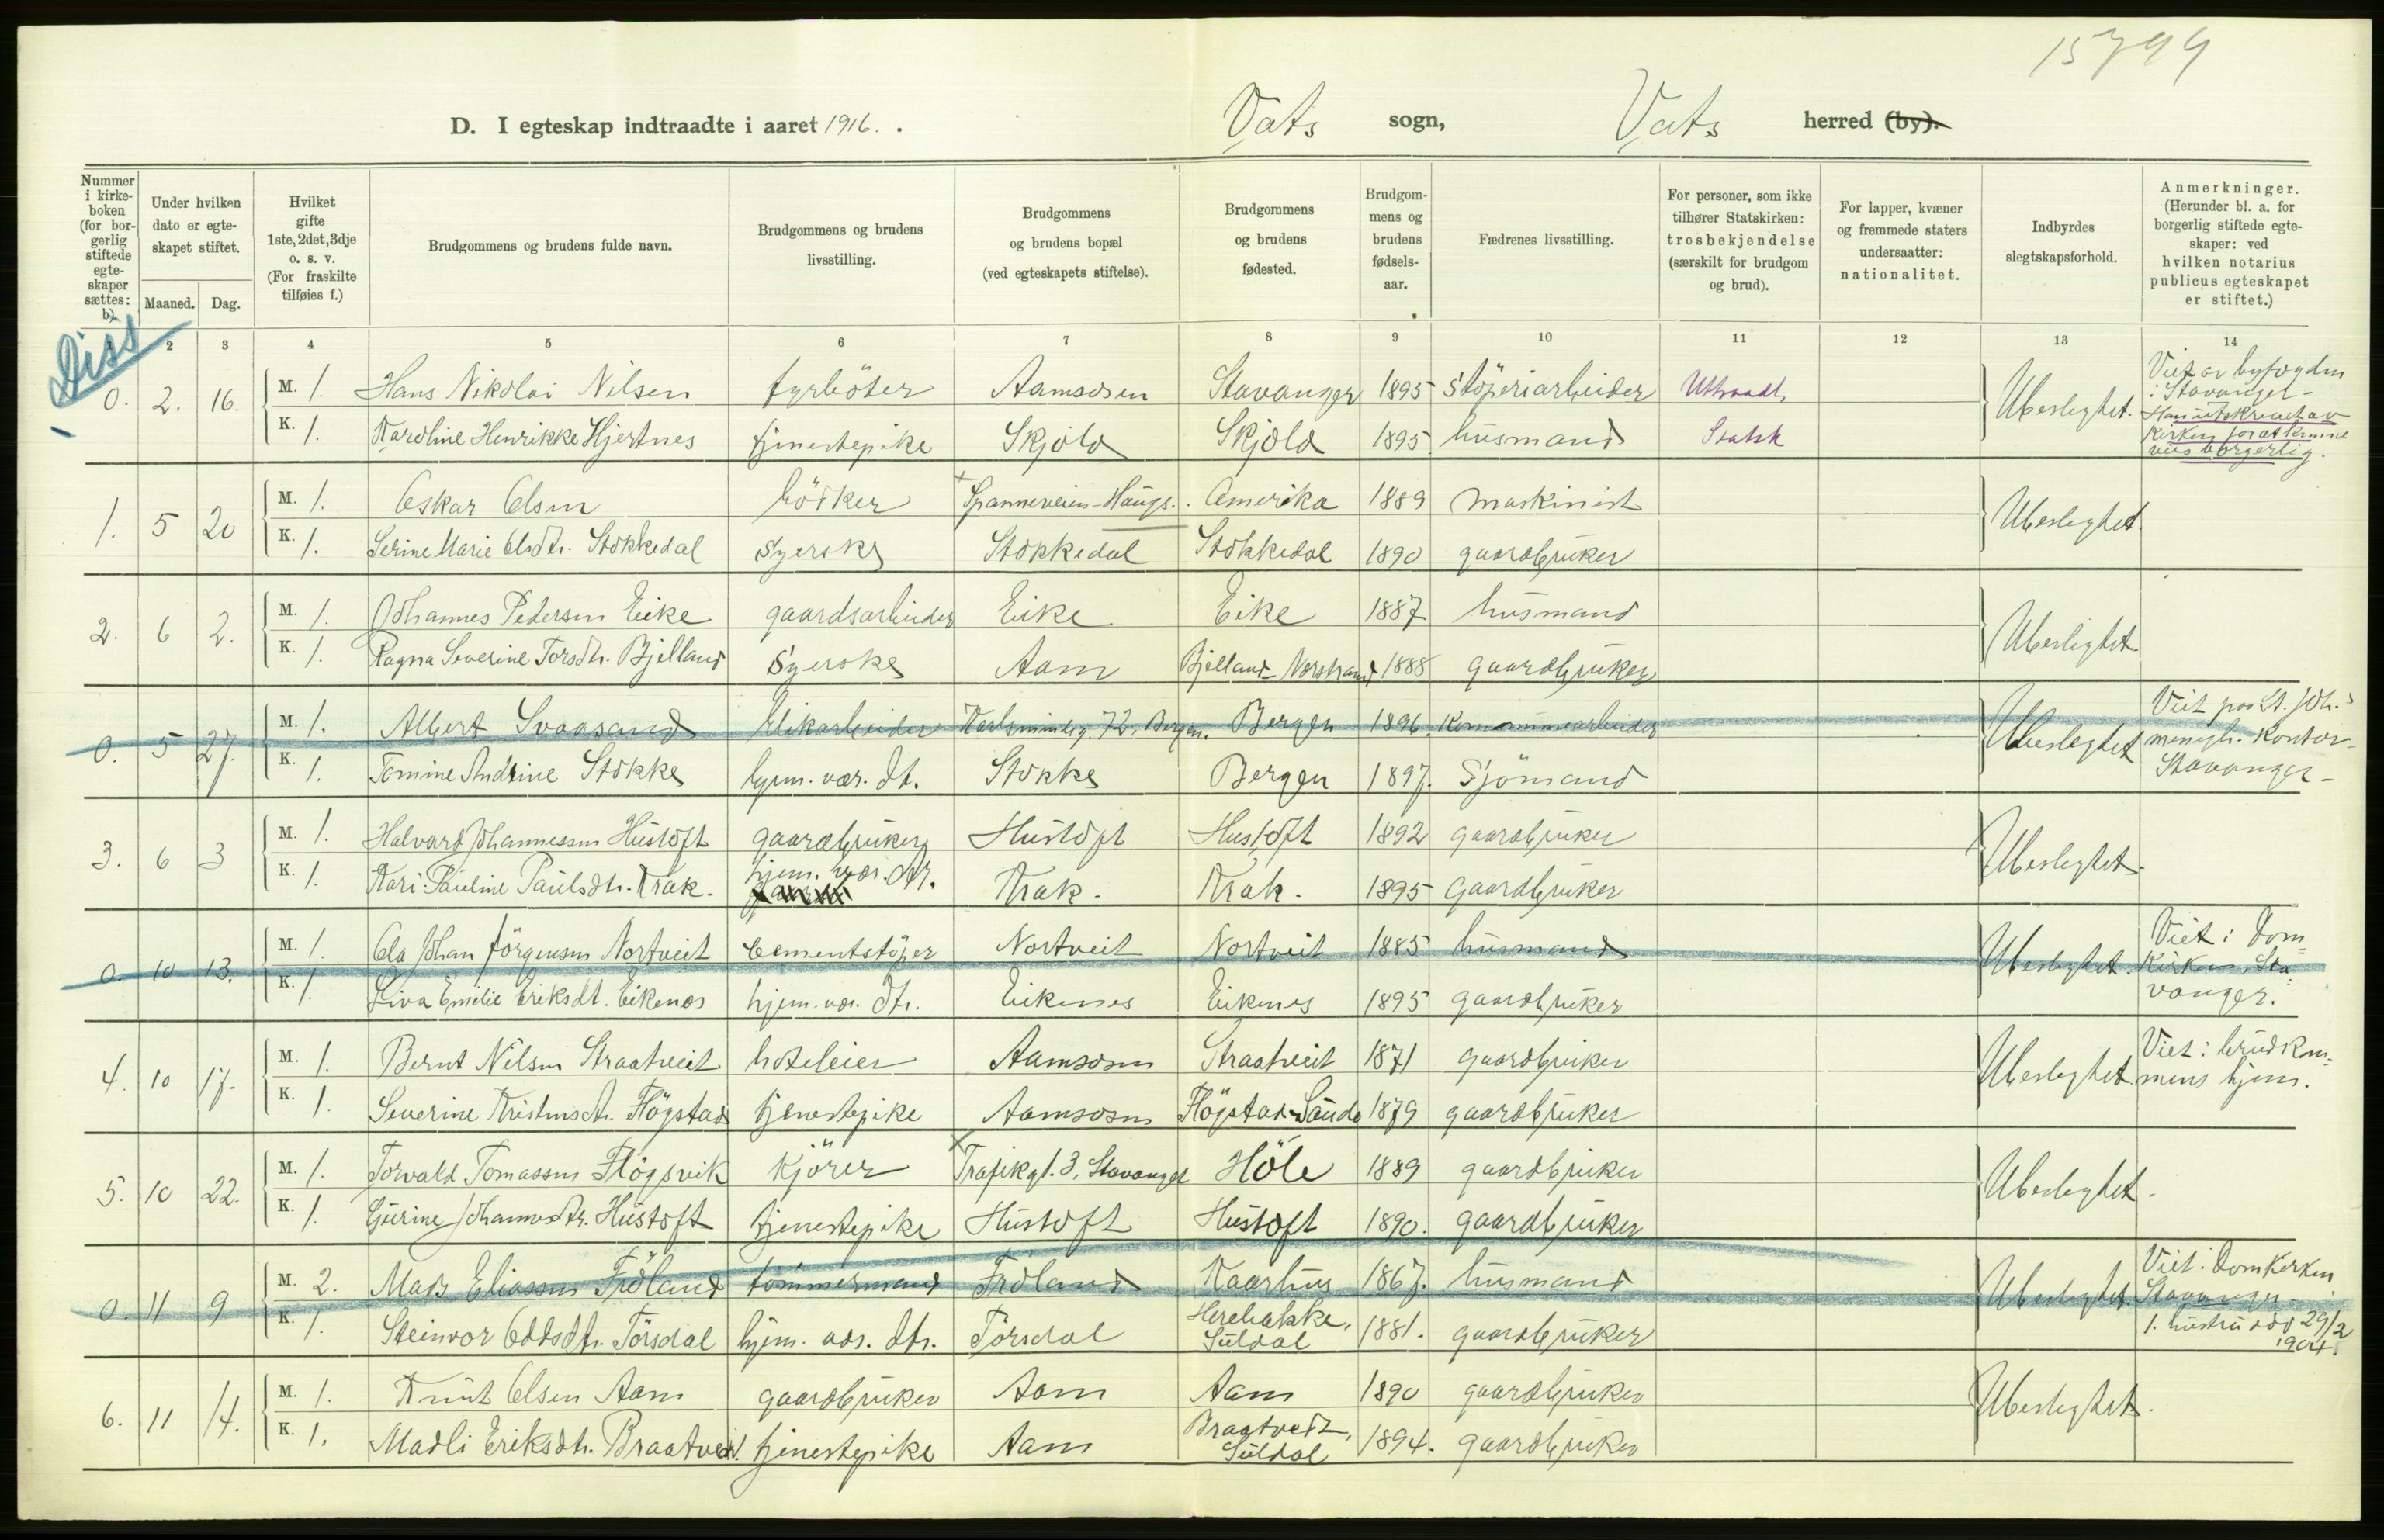 15799
D. I egteskap indtraadte i aaret 1916. . Vats sogn, Vats herred (by).
Nummer i kirkeboken (for borgerlig stiftede egteskaper sættes: b).
Under hvilken dato er egteskapet stiftet.
Maaned. Dag.
Hvilket gifte 1ste, 2det, 3dje o. s. v. (For fraskilte tilføies f.)
Brudgommens og brudens fulde navn.
Brudgommens og brudens livsstilling.
Brudgommens og brudens bopæl (ved egteskapets stiftelse).
Brudgommens og brudens fødested.
Brudgommens og brudens fødselsaar.
Fædrenes livsstilling.
For personer, som ikke tilhører Statskirken: trosbekjendelse (særskilt for brudgom og brud).
For lapper, kvæner og fremmede staters undersaatter: nationalitet.
Indbyrdes slegtskapsforhold.
Anmerkninger. (Herunder bl. a. for borgerlig stiftede egteskaper: ved hvilken notarius publicus egteskapet er stiftet.)
Diss
2 3 4 5 6 7 8 9 10 11 12 13 14
0. 2. 16. M. 1. Hans Nikolai Nilsen fyrböter Aamsosen Stavanger 1895 Störeriarbeider Uttraadt Ubeslegtet. Viet av byfogden i Stavanger - Han utskrevet av kirken for at kunne vies borgerlig.
K. 1. Karoline Henrikke Hjertnes tjenestepike Skjold Skjold 1895 husmand Statsk
1. 5 20 M. 1. Oskar Olsen bödker Spanneveien - Haugs. Amerika 1889 maskinist Ubeslegtet
K. 1. Serine Marie Olsdtr. Stokkedal Syerske Stokkedal Stokkedal 1890 gaardbruker
2. 6 2. M. 1. Johannes Pedersen Eike gaardsarbeider Eike Eike 1887 husmand Ubeslegtet
K. 1. Ragna Severine Torsdtr. Bjelland Syerske Aam Bjelland - Nerstrand 1888 gaardbruker
0. 5 27. M. 1. Albert Svaasand blikarbeider Karlsminde 72, Bergen. Bergen 1896. Kommunearbeider Ubeslegtet Viet paa St. Joh.s menigh. Kontor - Stavanger -
K. 1. Tomine Andrine Stokke hjem. vær. dt. Stokke Bergen 1897. Sjömand
3. 6 3 M. 1. Halvard Johannessen Hustoft gaardbruker Hustoft Hustoft 1892 gaardbruker Ubeslegtet.
K. 1. Kari Pauline Paulsdtr. Krak. hjem. vær. dtr. Krak. Krak. 1895 gaardbruker
0. 10 13. M. 1. Ola Johan Jörgensen Nortveit Cementstöper Nortveit Nortveit 1885 husmand Ubeslegtet. Viet i Domkirken, Stavanger.
K. 1. Liva Emilie Eriksdt. Eikenes hjem. vær. dtr. Eikenes Eikenes 1895 gaardbruker
4. 10 17. M. 1. Bernt Nilsen Straatveit hoteleier Aamsosen Straatveit 1871 gaardbruker Ubeslegtet Viet i brudkommens hjem.
K. 1. Severine Kristensdtr. Flögstad tjenestepike Aamsosen Flögstad - Saude 1879 gaardbruker
5. 10 22. M. 1. Torvald Tomassen Flögsvik Kjörer Trafikgt. 3, Stavanger Höle 1889 gaardbruker Ubeslegtet.
K. 1. Gurine Johannesdtr. Hustoft tjenestepike Hustoft Hustoft 1890. gaardbruker
0. 11 9 M. 2. Mads Eliassen Fröland tömmermand Fröland Kaarhus 1867. husmand Ubeslegtet Viet i Domkirken Stavanger - 1. hustru död 29/2 1904.
K. 1. Steinvor Oddsdtr. Törsdal hjem. vær. dtr. Törsdal Herebakke, Suldal 1881. gaardbruker
6. 11 14. M. 1. Knut Olsen Aam gaardbruker Aam Aam 1890 gaardbruker Ubeslegtet.
K. 1. Madli Eriksdtr. Braatveit. tjenestepike Aam Braatveit, Suldal 1894. gaardbruker